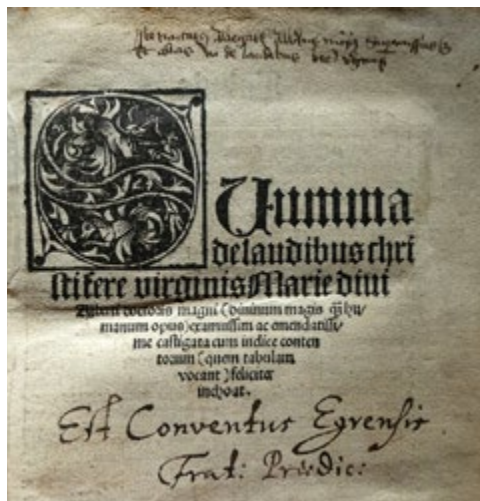 SUmma
de laudibus chri
stifere virginis Marie diui
Alberti doctoris magni (diuinum magis q̃ȝ hu/
manum opus) examussim ac emendatissi/
me castigata cum indice conten
torum (quem tabulam
vocant) feliciter
inchoat.
Est Conventus Egrensis
Frat: Prædic: